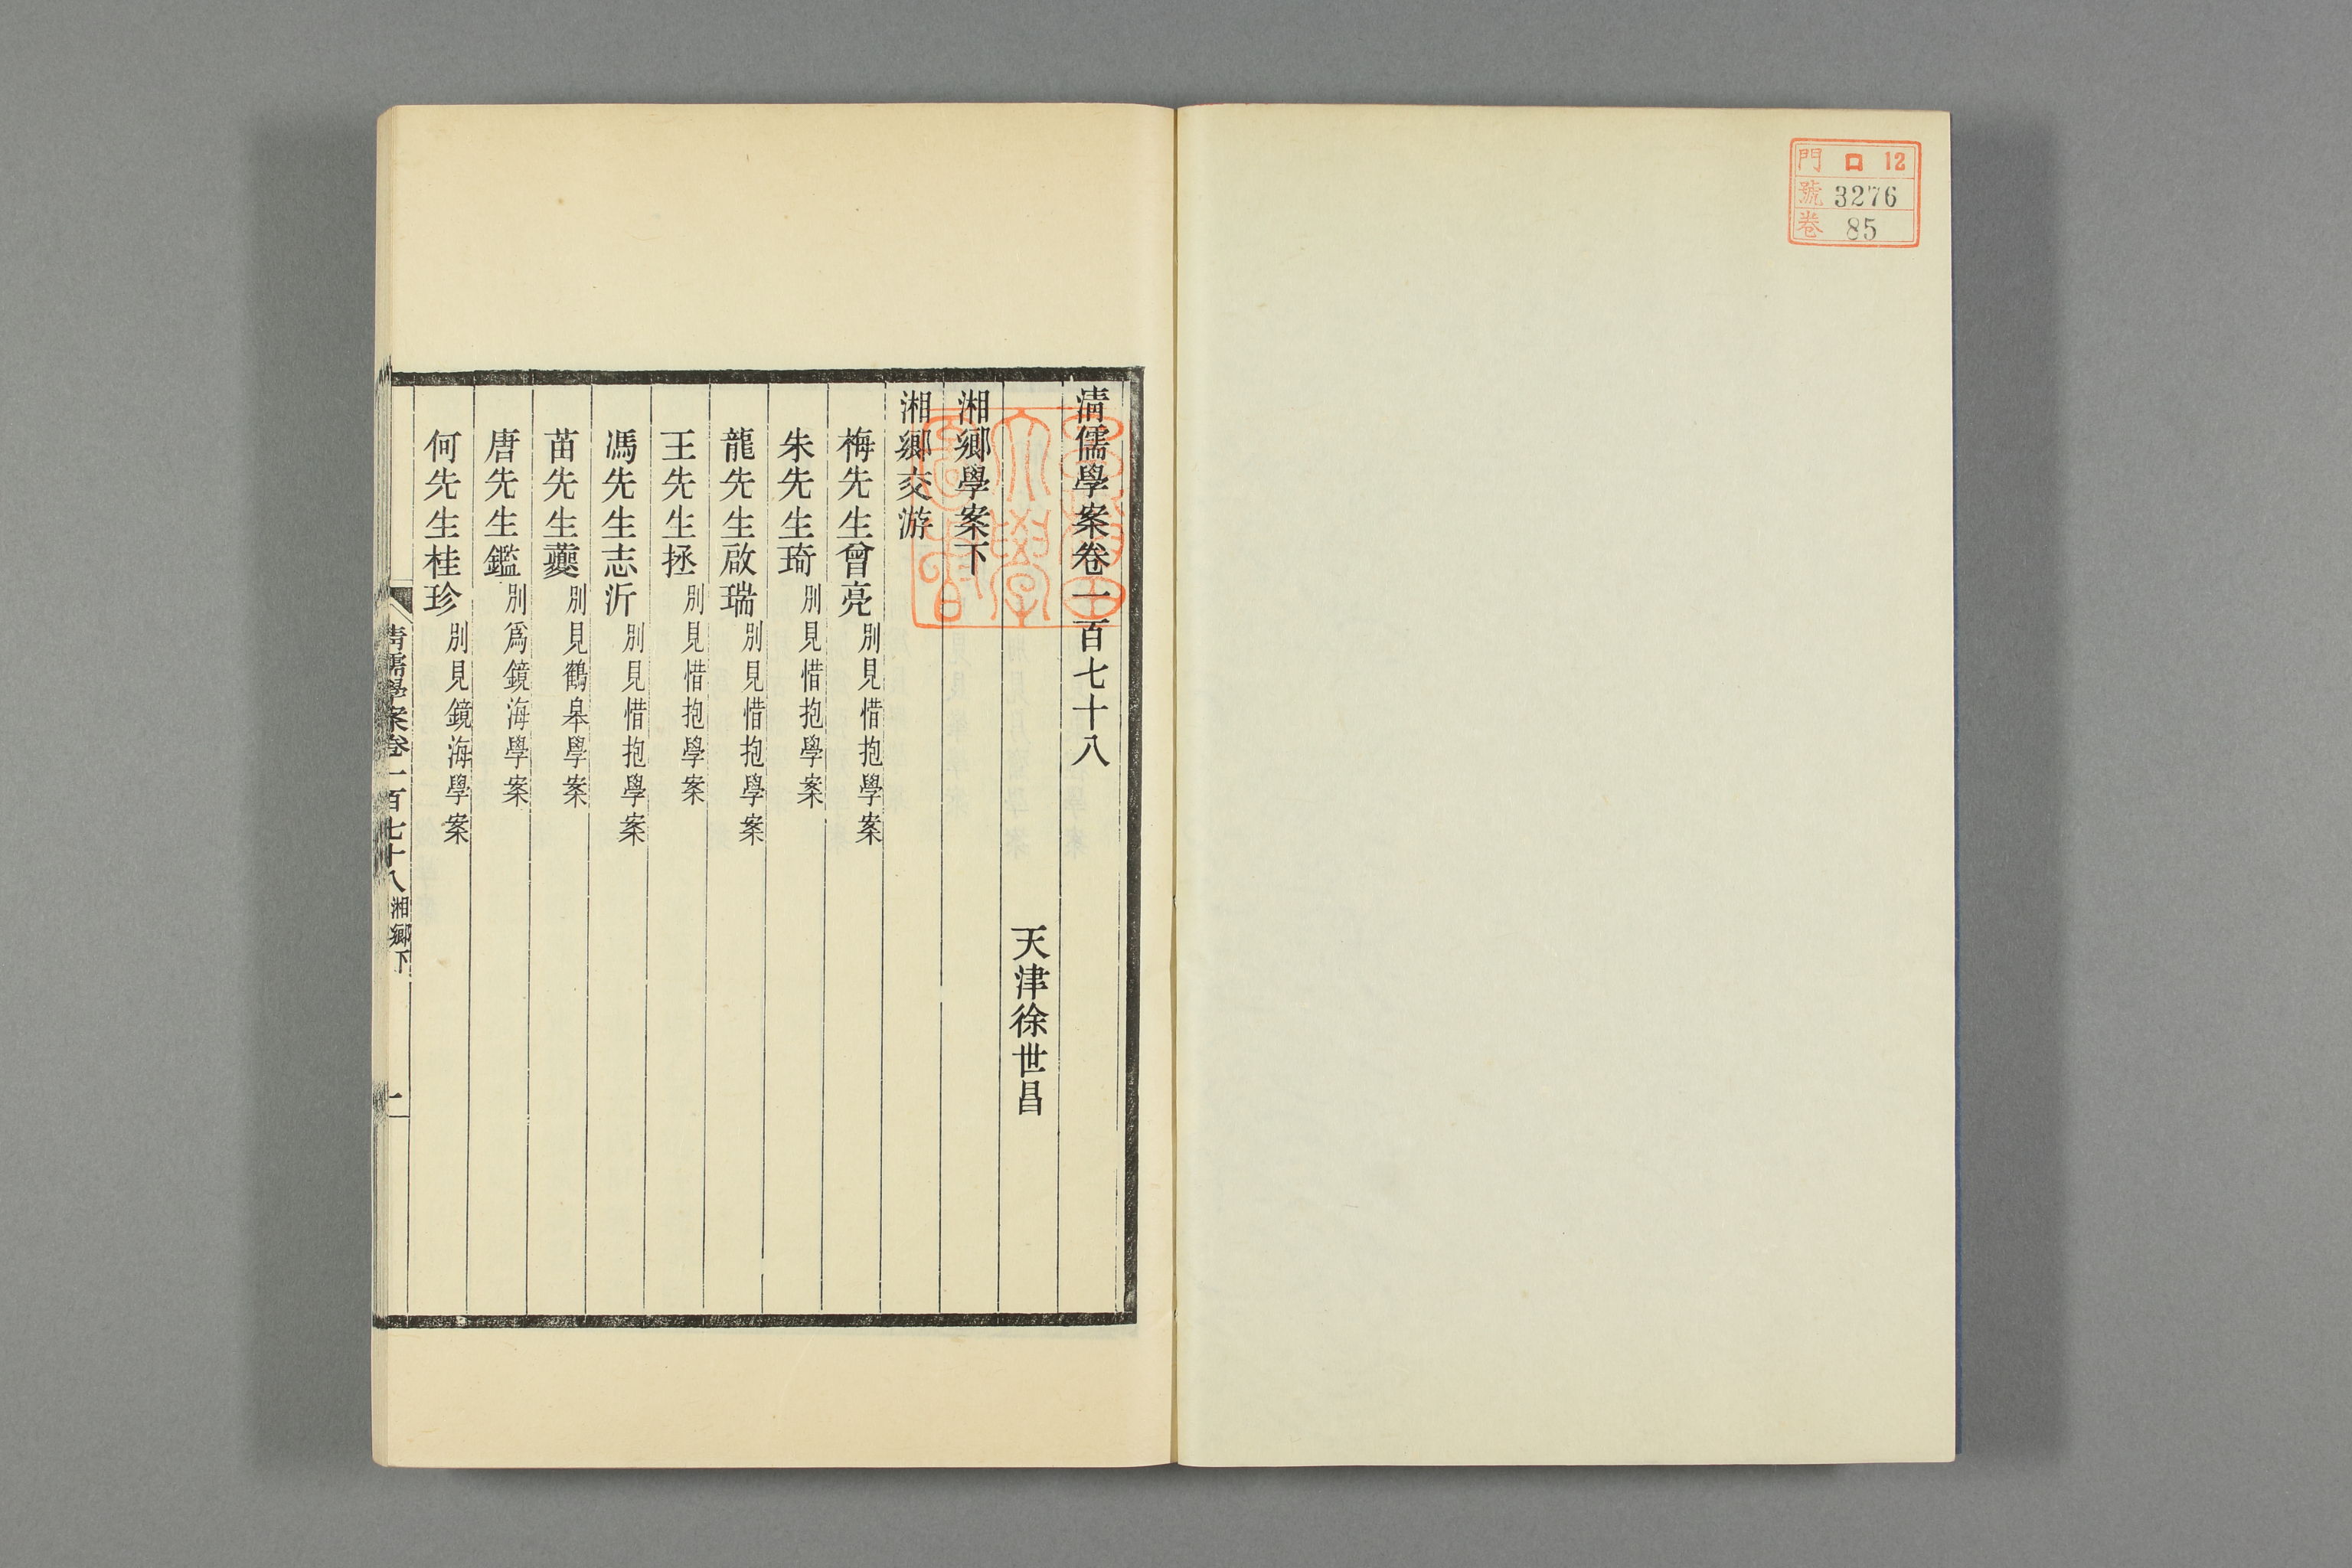 門 口 12
號 3276
卷 85
清儒學案卷一百七十八
天津徐世昌
湘鄉學案下
湘鄉交游
梅先生曾亮 別見惜抱學案
朱先生琦 別見惜抱學案
龍先生啟瑞 別見惜抱學案
王先生拯 別見惜抱學案
馮先生志沂 別見惜抱學案
苗先生夔 別見鶴皋學案
唐先生鑑 別爲鏡海學案
何先生桂珍 別見鏡海學案
清儒學案卷一百七十八 湘鄉下 一